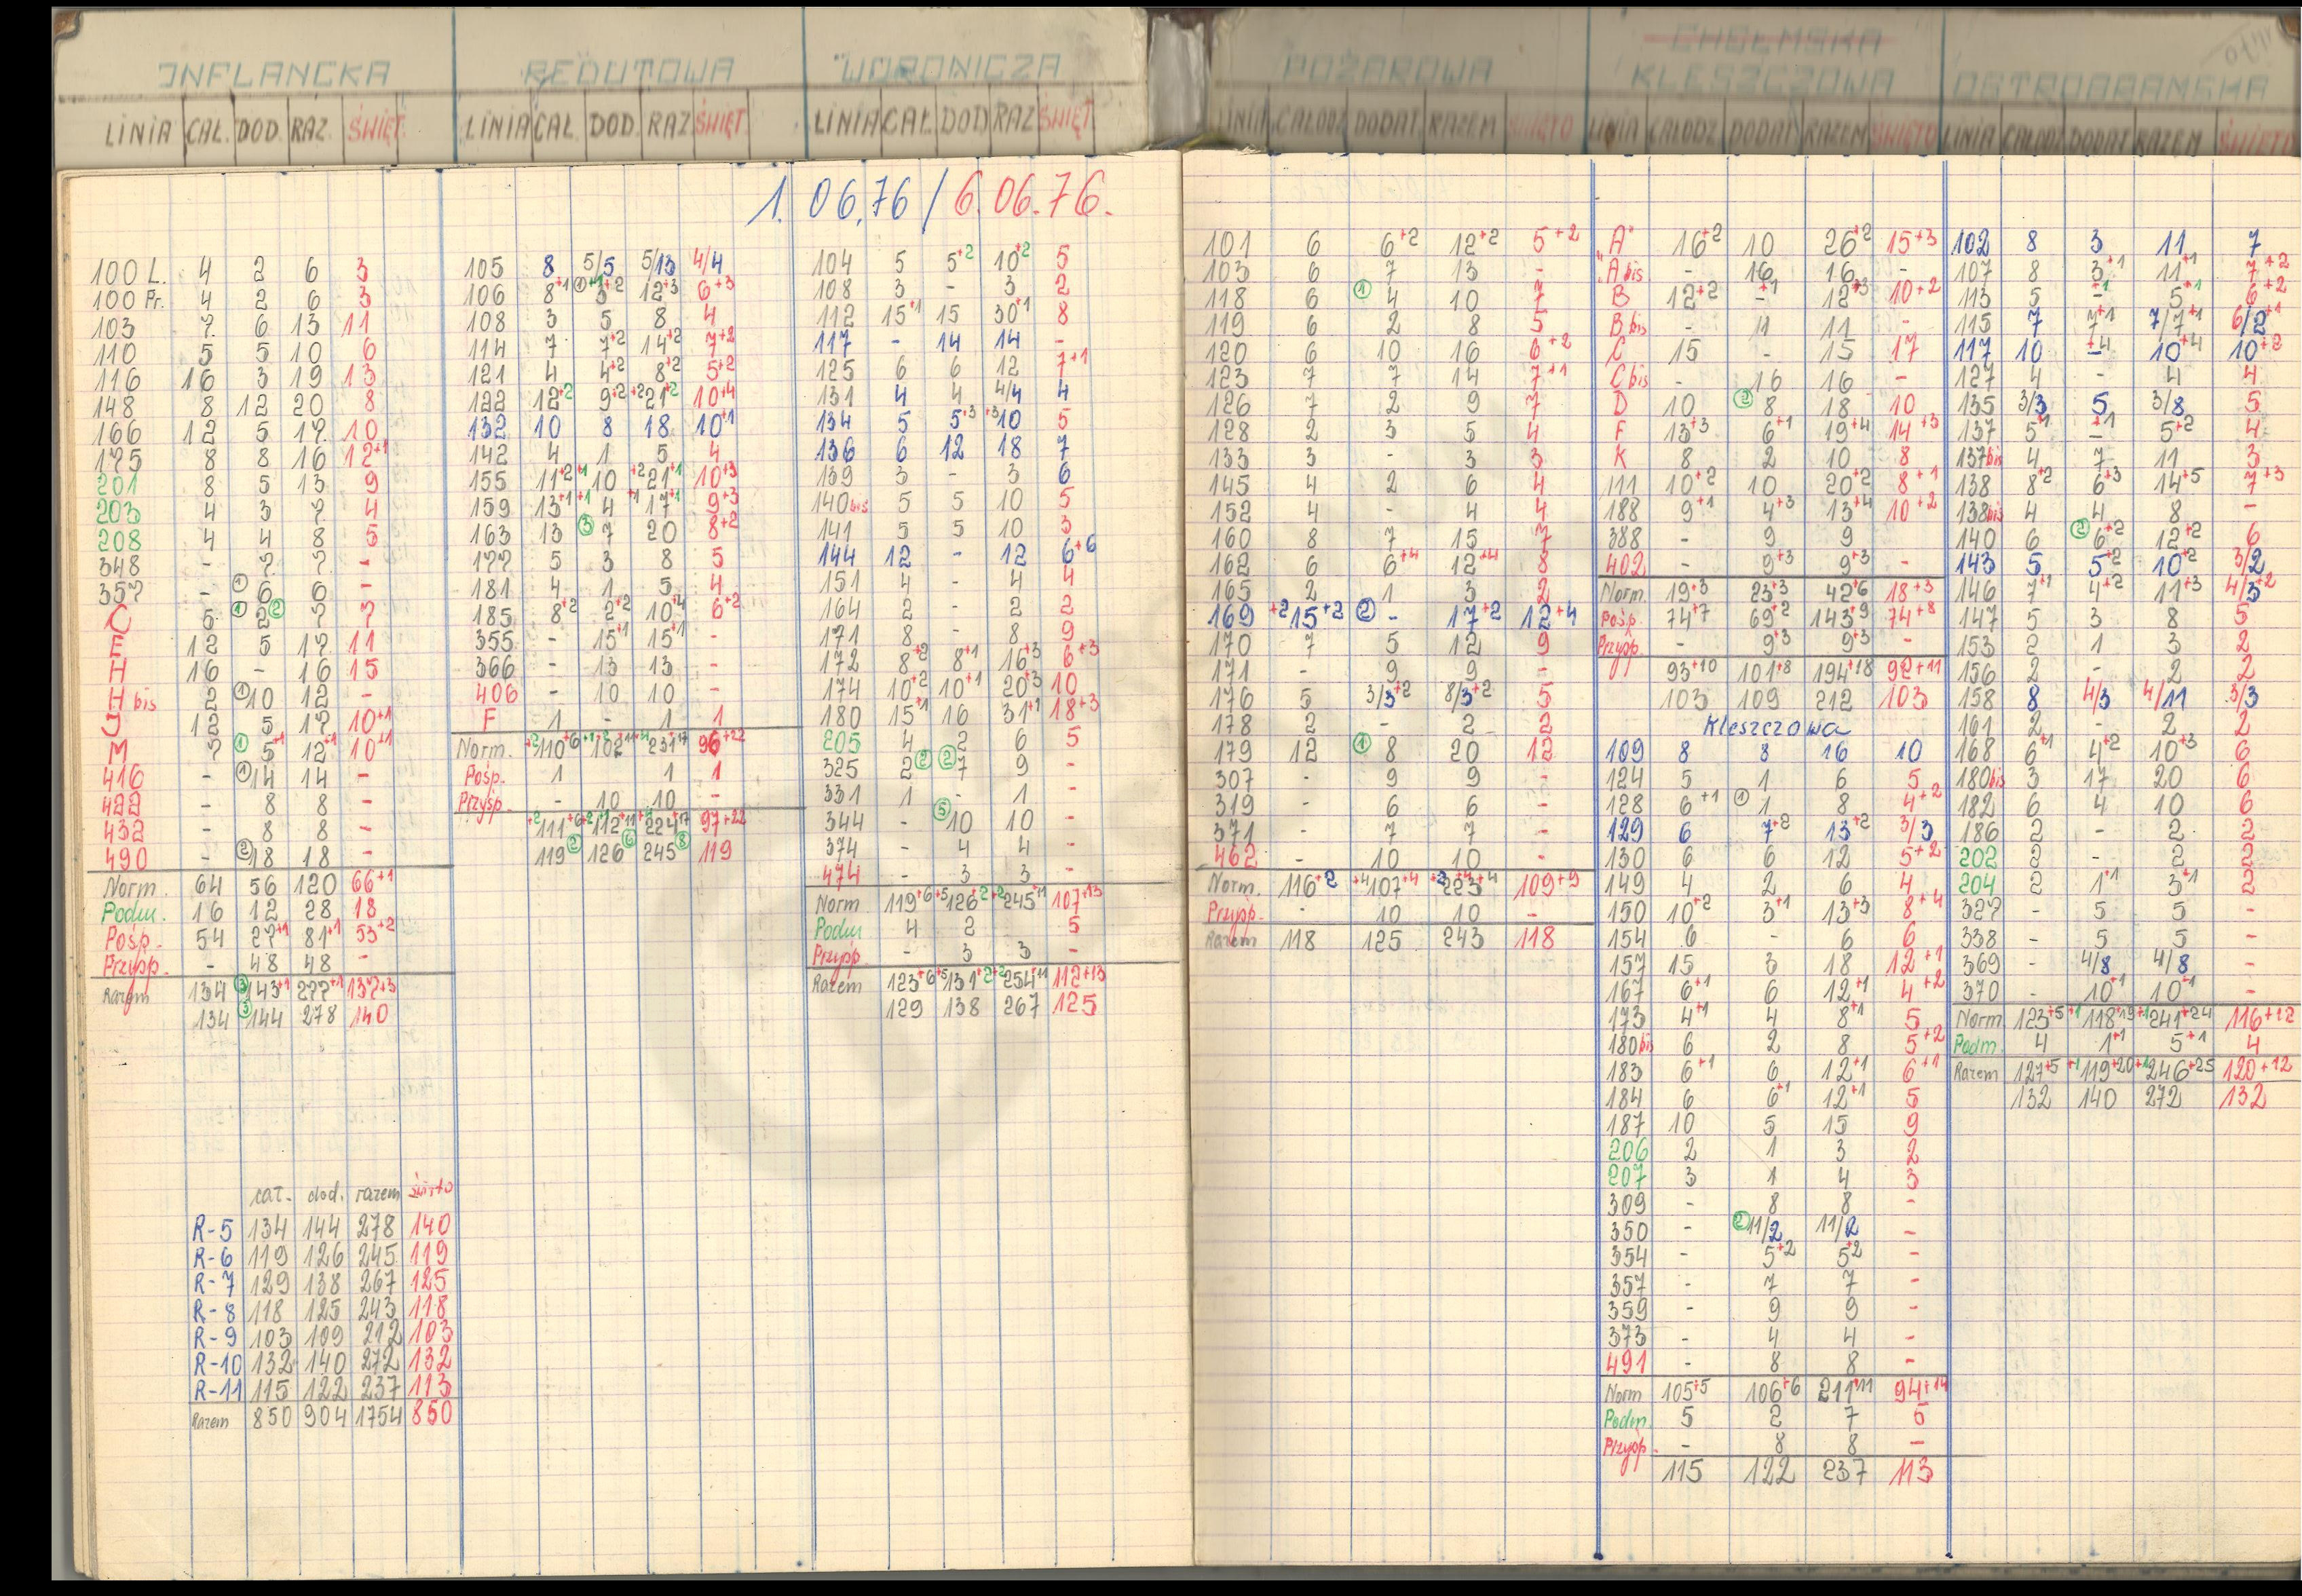 INFLANCKA
LINIA CAŁ. DOD. RAZ. ŚWIĘT.
100 L. 4 2 6 3
100 Pr. 4 2 6 3
103 7 6 13 11
110 5 5 10 6
116 16 3 19 13
148 8 12 20 8
166 12 5 17 10
175 8 8 16 12+1
201 8 5 13 9
203 4 3 7 4
208 4 4 8 5
348 - 7 7 -
357 - ① 6 6 -
C 5 ① 2 ② 7 7
E 12 5 17 11
H 16 - 16 15
H bis 2 ① 10 12 -
J 12 5 17 10+1
M 7 ① 5+1 12+1 10+1
416 - ① 14 14 -
422 - 8 8 -
432 - 8 8 -
490 - ② 18 18 -
Norm. 64 56 120 66+1
Podm. 16 12 28 18
Pośp. 54 27+1 81+1 53+2
Przysp. - 48 48 -
Razem 134 ③ 143+1 277+1 137+3
134 ③ 144 278 140
cał. dod. razem święto
R-5 134 144 278 140
R-6 119 126 245 119
R-7 129 138 267 125
R-8 118 125 243 118
R-9 103 109 212 103
R-10 132 140 272 132
R-11 115 122 237 113
Razem 850 904 1754 850
REDUTOWA
LINIA CAŁ. DOD. RAZ. ŚWIĘT.
105 8 5/5 5/13 4/4
106 8+1 ①+1 3+2 12+3 6+3
108 3 5 8 4
114 7 7+2 14+2 7+2
121 4 4+2 8+2 5+2
122 12+2 9+2 +2 21+2 10+4
132 10 8 18 10+1
142 4 1 5 4
155 11+2 +1 10 +2 21+1 10+3
159 13+1 +1 4 +1 17+1 9+3
163 13 ③ 7 20 8+2
177 5 3 8 5
181 4 1 5 4
185 8+2 2+2 10+4 6+2
355 - 15+1 15+1 -
366 - 13 13 -
406 - 10 10 -
F 1 - 1 1
Norm. 96+22
Pośp. 1 1 1
Przysp. - 10 10 -
97+22
119 ② 126 ⑥ 245 ⑧ 119
WORONICZA
LINIA CAŁ. DOD. RAZ. ŚWIĘT.
1.06.76 / 6.06.76.
104 5 5+2 10+2 5
108 3 - 3 2
112 15+1 15 30+1 8
117 - 14 14 -
125 6 6 12 7+1
131 4 4 4/4 4
134 5 5+3 +3 10 5
136 6 12 18 7
139 3 - 3 6
140 bis 5 5 10 5
141 5 5 10 3
144 12 - 12 6+6
151 4 - 4 4
164 2 - 2 2
171 8 - 8 9
172 8+2 8+1 16+3 6+3
174 10+2 10+1 20+3 10
180 15+1 16 31+1 18+3
205 4 2 6 5
325 2 ② ② 7 9 -
331 1 - 1 -
344 - ⑤ 10 10 -
374 - 4 4 -
474 - 3 3 -
Norm 119+6 +5 126+2 +2 245+11 107+13
Podm 4 2 5
Przysp. - 3 3 -
Razem 123+6 +5 131+2 +2 254+11 112+13
129 138 267 125
POŻAROWA
LINIA CAŁODZ. DODAT. RAZEM ŚWIĘTO
101 6 6+2 12+2 5+2
103 6 7 13 -
118 6 ① 4 10 7
119 6 2 8 5
120 6 10 16 6+2
123 7 7 14 7+1
126 7 2 9 7
128 2 3 5 4
133 3 - 3 3
145 4 2 6 4
152 4 - 4 4
160 8 7 15 7
162 6 6+4 12+4 8
165 2 1 3 2
169 +2 15+2 ② - 17+2 12+4
170 7 5 12 9
171 - 9 9 -
176 5 3/3+2 8/3+2 5
178 2 - 2 2
179 12 ① 8 20 12
307 - 9 9 -
319 - 6 6 -
371 - 7 7 -
462 - 10 10 -
Norm. 116+2 +4 107+4 223+4 109+9
Przysp. - 10 10 -
Razem 118 125 243 118
CHEŁMSKA
KLESZCZOWA
LINIA CAŁODZ. DODAT. RAZEM ŚWIĘTO
"A" 16+2 10 26+2 15+3
"A bis - 16 16 -
B 12+2 -+1 12+3 10+2
B bis - 11 11 -
C 15 - 15 17
C bis - 16 16 -
D 10 ② 8 18 10
F 13+3 6+1 19+4 14+3
K 8 2 10 8
111 10+2 10 20+2 8+1
188 9+1 4+3 13+4 10+2
388 - 9 9
402 - 9+3 9+3 -
Norm. 19+3 23+3 42+6 18+3
Pośp. 74+7 69+2 143+9 74+8
Przysp. - 9+3 9+3 -
93+10 101+8 194+18 92+11
103 109 212 103
Kleszczowa
109 8 8 16 10
124 5 1 6 5
128 6+1 ① 1 8 4+2
129 6 7+2 13+2 3/3
130 6 6 12 5+2
149 4 2 6 4
150 10+2 3+1 13+3 8+4
154 6 - 6 6
157 15 3 18 12+1
167 6+1 6 12+1 4+2
173 4+1 4 8+1 5
180 bis 6 2 8 5+2
183 6+1 6 12+1 6+1
184 6 6+1 12+1 5
187 10 5 15 9
206 2 1 3 2
207 3 1 4 3
309 - 8 8 -
350 - ② 11/2 11/2 -
354 - 5+2 5+2 -
357 - 7 7 -
359 - 9 9 -
373 - 4 4 -
491 - 8 8 -
Norm 105+5 106+6 211+11 94+14
Podm. 5 2 7 5
Przysp. - 8 8 -
115 122 237 113
OSTROBRAMSKA
LINIA CAŁODZ. DODAT RAZEM ŚWIĘTO
102 8 3 11 7
107 8 3+1 11+1 7+2
113 5 -+1 5+1 6+2
115 7 7+1 7/7+1 6/2+1
117 10 -+4 10+4 10+2
127 4 - 4 4
135 3/3 5 3/8 5
137 5+1 -+1 5+2 4
137 bis 4 7 11 3
138 8+2 6+3 14+5 7+3
138 bis 4 4 8 -
140 6 ② 6+2 12+2 6
143 5 5+2 10+2 3/2
146 7+1 4+2 11+3 4/3+2
147 5 3 8 5
153 2 1 3 2
156 2 - 2 2
158 8 4/3 4/11 3/3
161 2 - 2 2
168 6+1 4+2 10+3 6
180 bis 3 17 20 6
182 6 4 10 6
186 2 - 2 2
202 2 - 2 2
204 2 1+1 3+1 2
327 - 5 5 -
338 - 5 5 -
369 - 4/8 4/8 -
370 - 10+1 10+1 -
Norm 123+5 +1 118+19 +1 241+24 116+12
Podm. 4 1+1 5+1 4
Razem 127+5 +1 119+20 +1 246+25 120+12
132 140 272 132